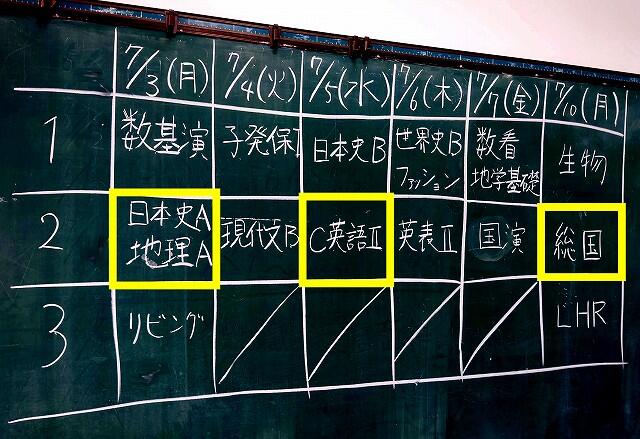 7/3(月) 7/4(火) 7/5(水) 7/6(木) 7/7(金) 7/10(月)
1 数基演 子発保I 日本史B 世界史B ファッション 数看 地学基礎 生物
2 日本史A 地理A 現代文B C英語II 英表II 国演 総国
3 リビング LHR